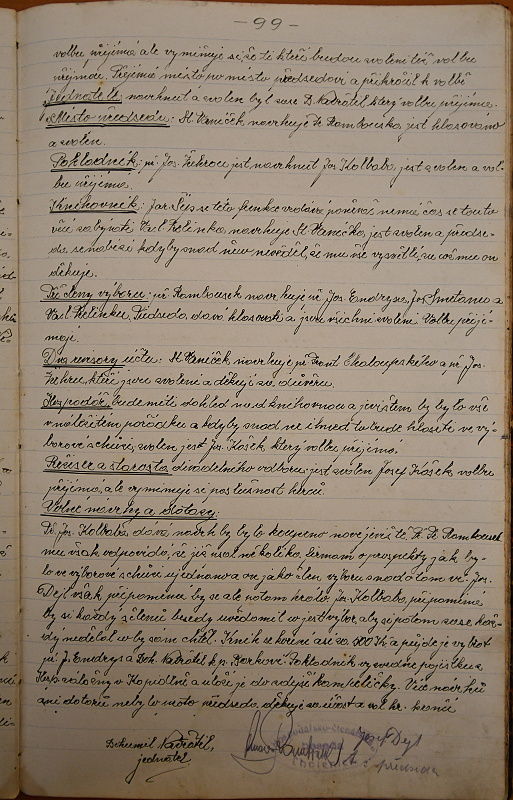 - 99 -
volbu přijímá ale vyminuje si, že ti kteří budou zvoleni též volbu
přijmou. Přejímá místo po místo předsedovi a přikročil k volbě
Jednatele: navrhnut a zvolen byl zase B. Kvátil který volbu přijímá.
Místo předseda: St. Vaníček navrhuje Fr. Rambouska, jest hlasováno
a zvolen.
Pokladník: př. Jos. Fehrer jest navrhnut Jos. Kolbaba, jest zvolen a vol-
bu přijímá.
Knihovník: Jar. Šíp se této funkce vzdává poněvač nemá čas se touto
věcí zabývati. Karel Zelinka navrhuje St. Vaníčka, jest zvolen a předse-
da se nabízí kdyby snad něco nevěděl, že mu vše vysvětlí, za což mu on
děkuje.
Tři členy výboru: př. Rambousek navrhuje př. Jos. Endrysa, Jos. Smetanu a
Karl Zelinku. Předseda dává hlasovati a jsou všichni zvoleni. Volbu přijí-
mají.
Dva revisory účtů: St. Vaníček navrhuje př. Frant. Chaloupského a př. Jos.
kteří jsou zvoleni a děkují za důvěru.
Hospodář, bude míti dohled nad knihovnou a jevištěm by bylo vše
v náležitém pořádku a kdyby snad ne ihned to bude hlásiti ve vý-
borové schůzi, zvolen jest Jos. Košek, který volbu přijímá.
Režisér a starosta divadelního odboru jest zvolen Josef Košek, volbu
přijímá, ale vyminuje si poslušnost herců.
Volné návrhy a dotazy:
Př. Jos. Kolbaba, dává návrh by bylo koupeno nové jeviště. Př. Fr. Rambousek
mu však odpovídá, že již psal několika firmám o prospekty, jak by-
lo ve výborové schůzi ujednáno a on jako člen výboru snad o tom ví. Jos.
Dejl však připomíná by se ale potom hrálo. Jos. Kolbaba, připomíná
by si každý z členů besedy uvědomil co jest výbor, aby si potom zase kaž-
dý nedělal co by sám chtěl. Knih se koupí asi za 500 Kč a půjde je vybrat
př. J. Endrys a Boh. Kvátil k p. Horkové. Pokladník vyzvedne pojistku z
Hosp. záložny v Kopidlně a uloží je do zdejší kampeličky. Více návrhů
ani dotazů nebylo proto předseda děkuje za účast a val. hr. končí
Bohumil Kvátil,
jednatel
Josef Dejl